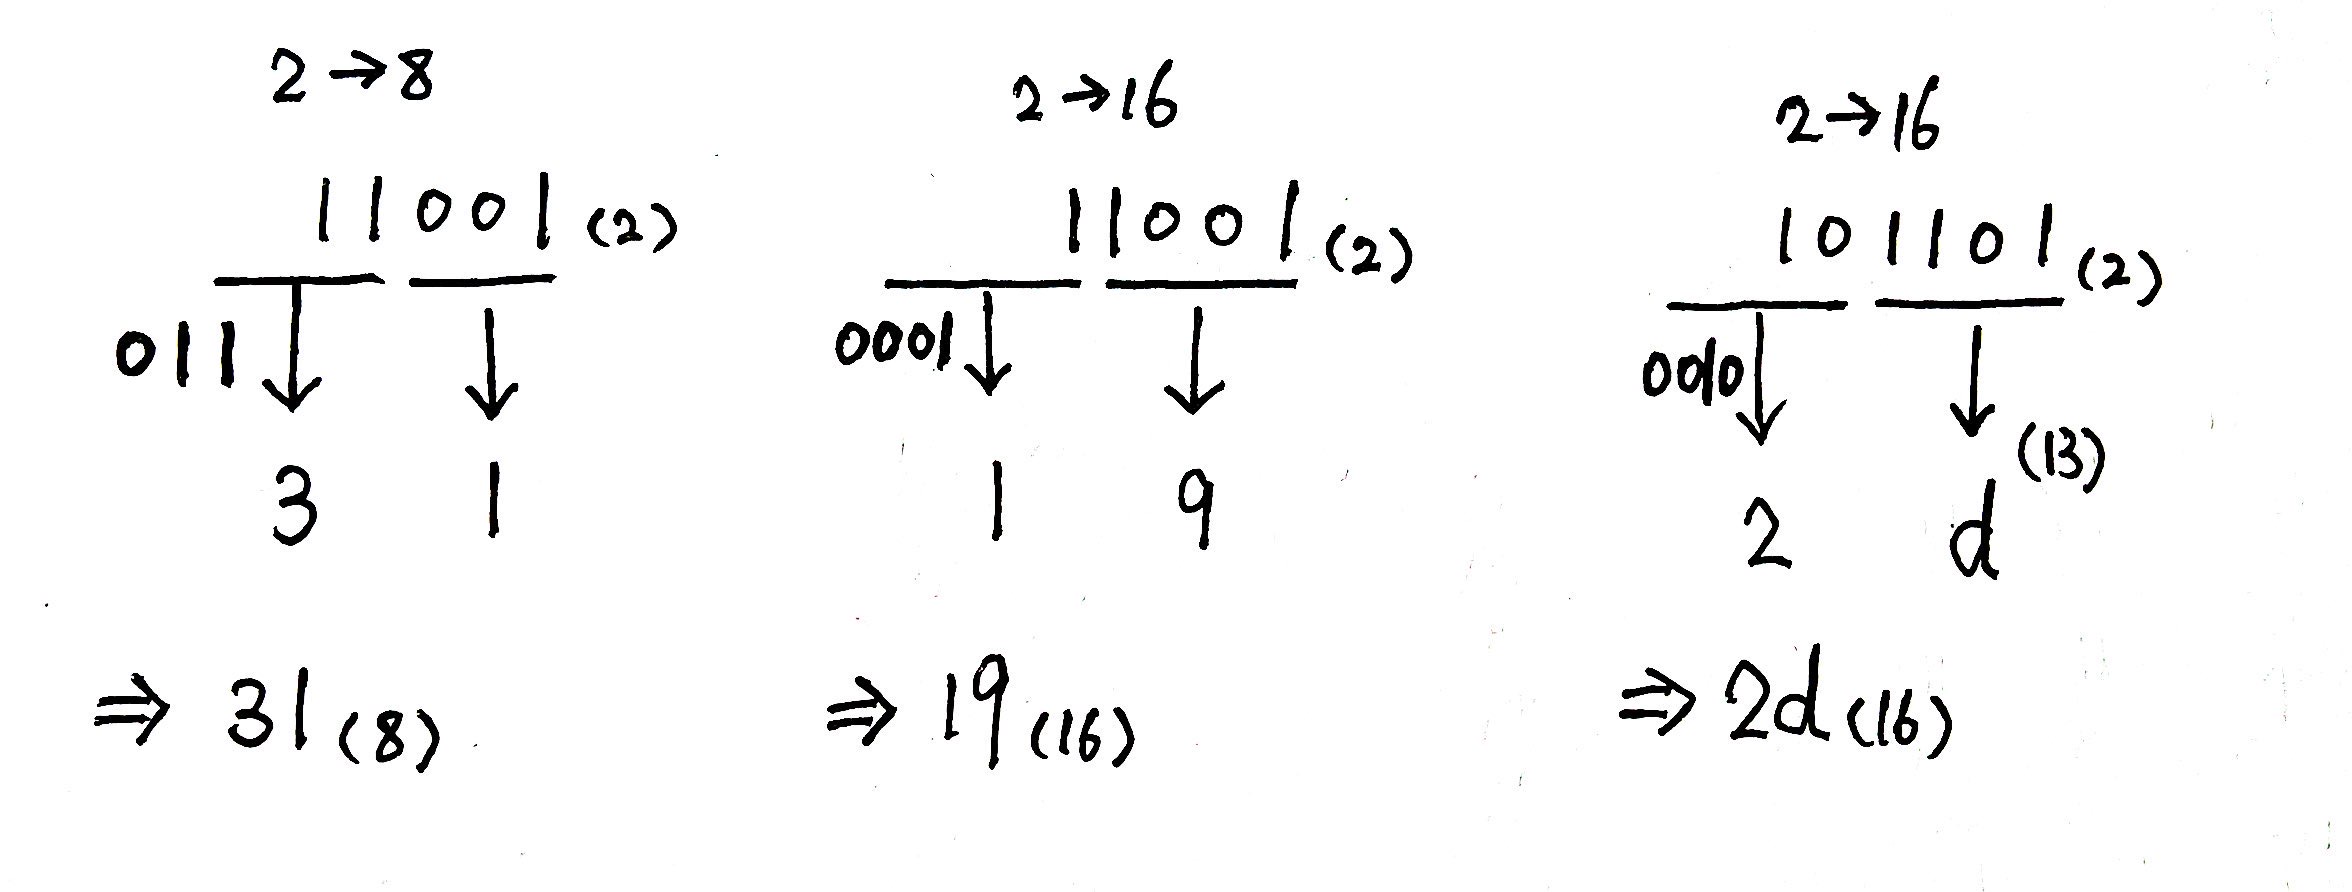 2→8
11001(2)
011
3 1
⇒ 31(8)
2→16
11001(2)
0001
1 9
⇒ 19(16)
2→16
101101(2)
0010
(13)
2 d
⇒ 2d(16)